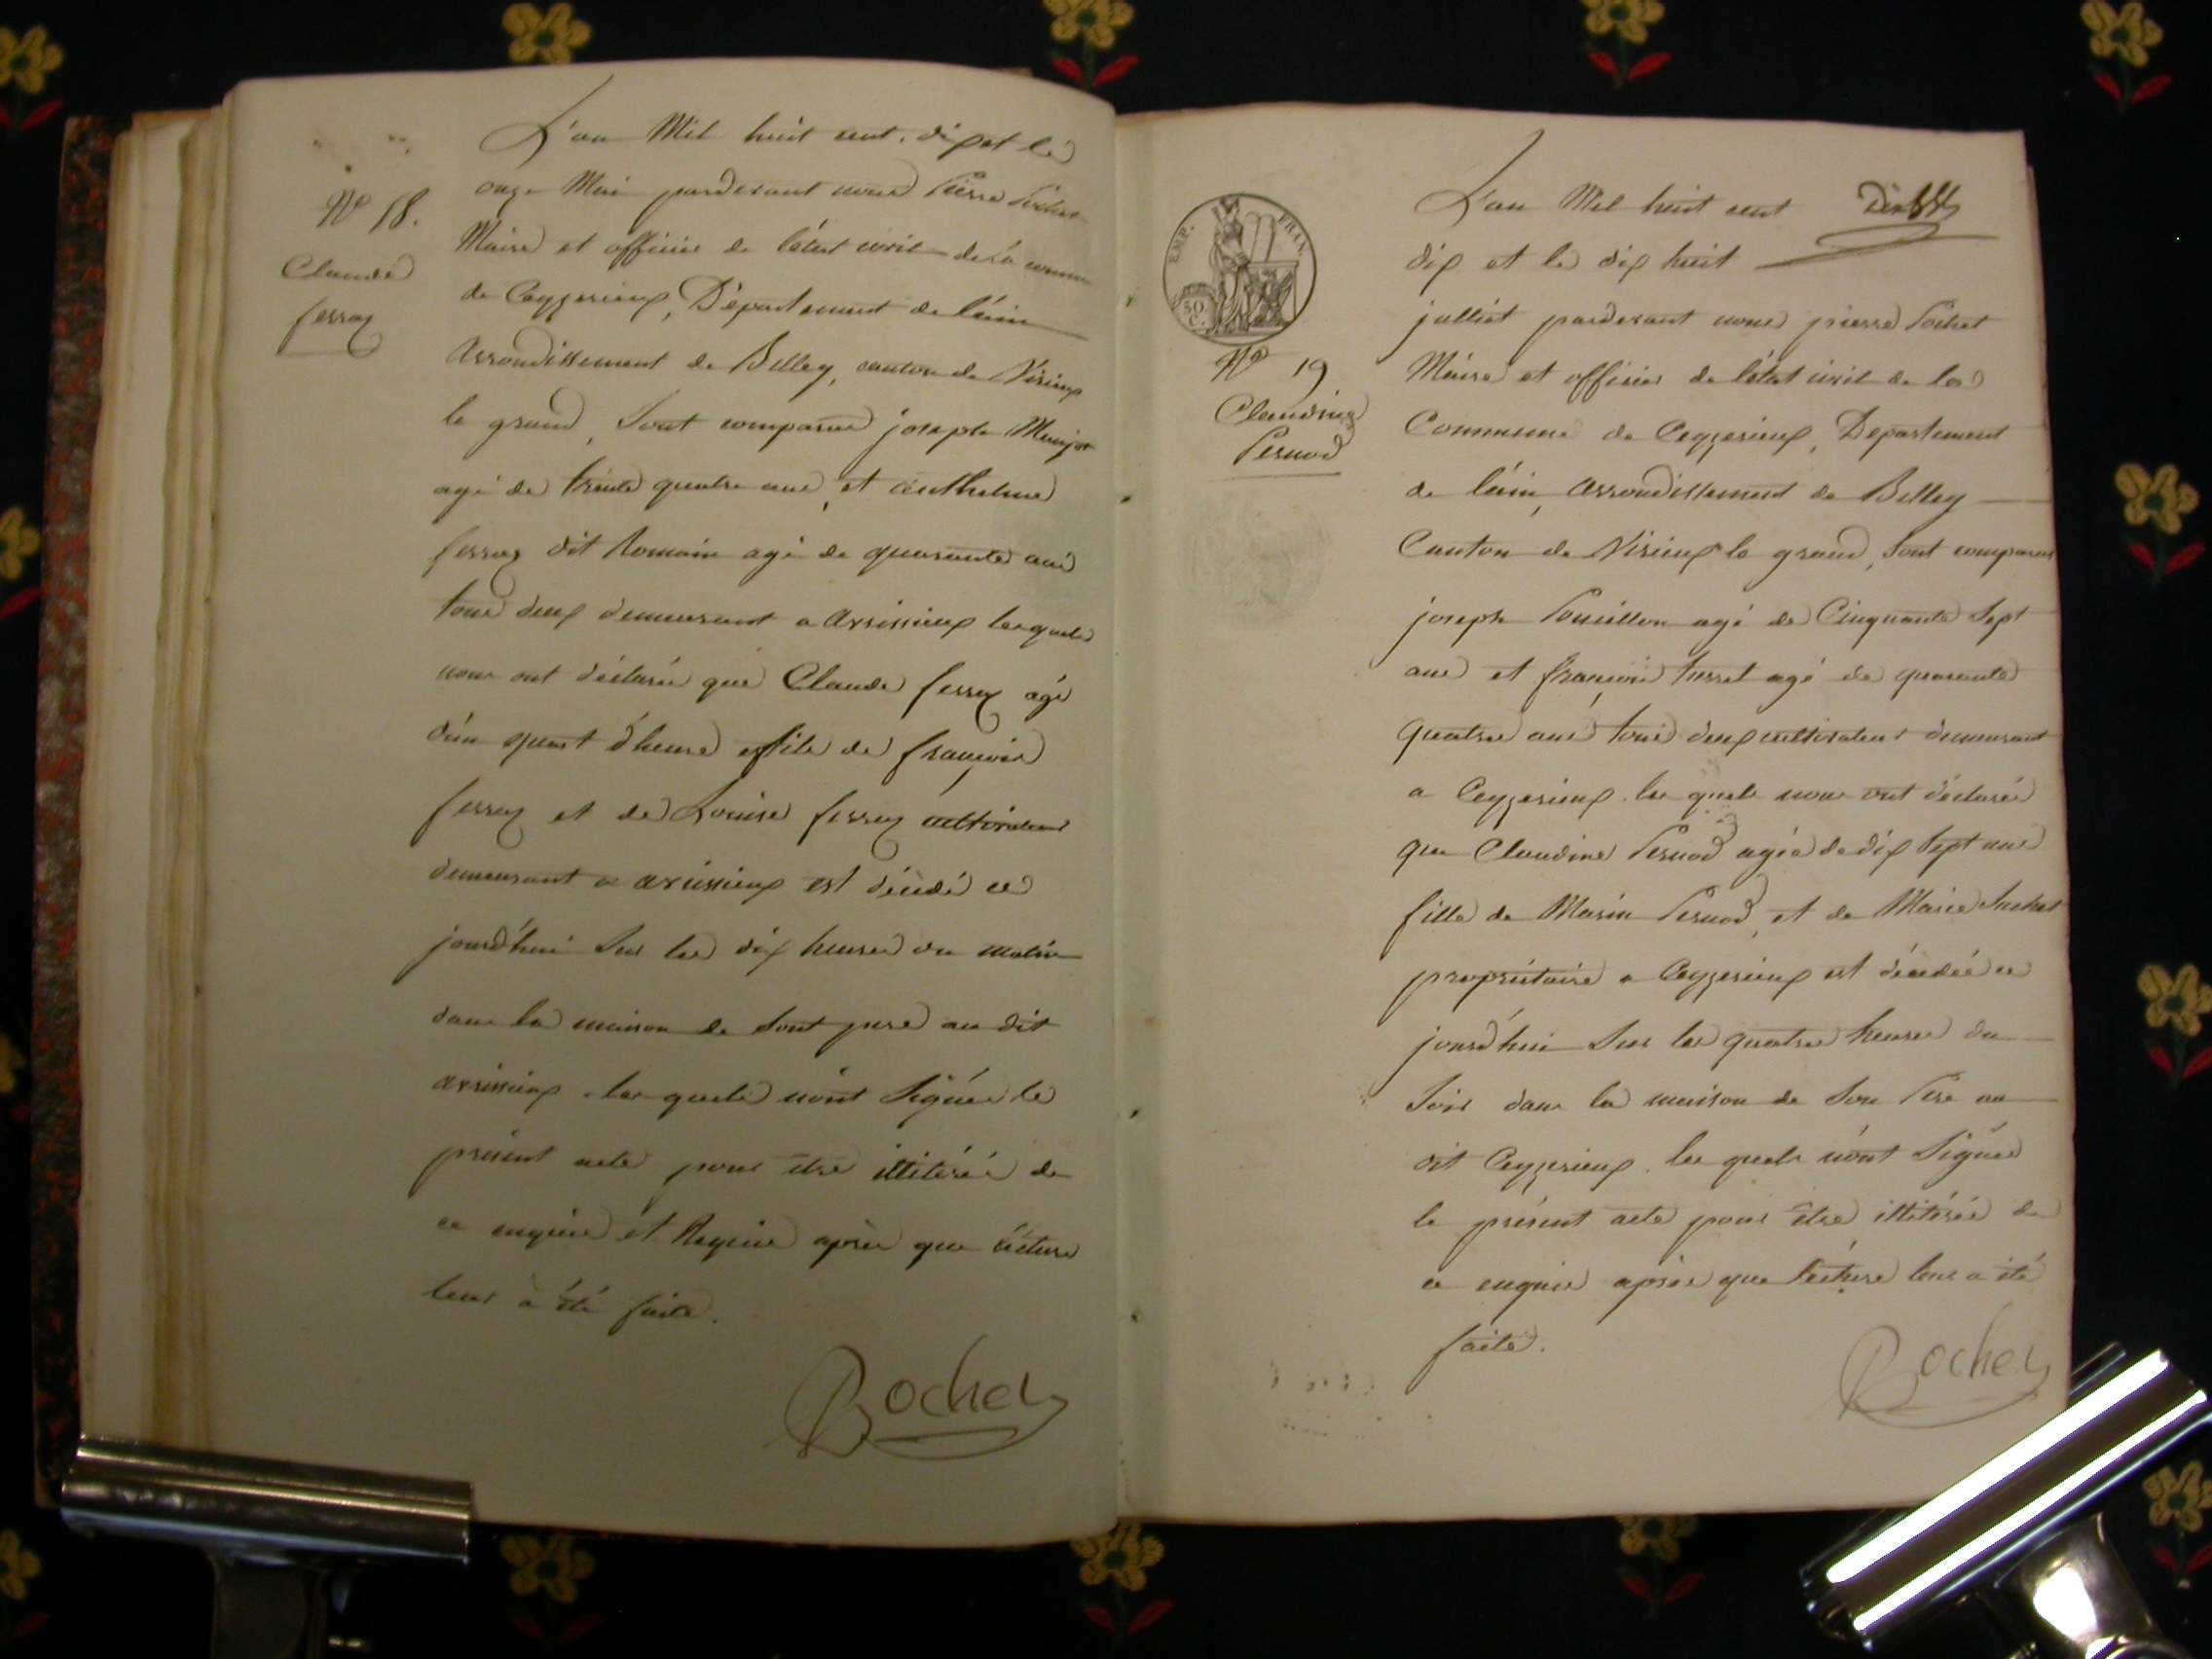 L'an Mil huit cent dix et le
onze Mai pardevant nous Pierre Pochet
Nº 18. Maire et officier de l'état civil de la commune
Claude de Ceyzerieux, Département de l'ain
ferroz arrondissement de Belley, canton de Virieux
le grand, Sont comparus joseph
agé de trente quatre ans, et anthelme
ferroz dit Romain agé de quarante ans
tous deux demeurant a avrissieux lesquels
nous ont déclarés que Claude ferroz agé
d'un quart d'heure fils de françois
ferroz et de Louise ferroz cultivateurs
demeurant a avrissieux est décédé ce
jourd'hui Sur les dix heures du matin
dans la maison de Sont pere au dit
avrissieux les quels n'ont Signés le
présent acte pour être illitérés de
ce enquis et Requis après que lécture
leur à été faite.
Bochet
EMP. FRAN.
50 C.
L'an Mil huit cent
dix et le dix huit
julliet pardevant nous pierre Pochet
Nº 19 Maire et officier de l'état civil de la
Claudine Commune de Ceyzerieux, Departement
Pernod de l'ain, arrondissement de Belley
Canton de Virieux le grand, Sont comparus
joseph Pouillon agé de Cinquante Sept
ans et françois agé de quarante
quatre ans tous deux cultivateurs demeurant
a Ceyzerieux les quels nous ont déclarés
que Claudine Pernod agée de dix Sept ans
fille de Marin Pernod, et de Marie Suchet
propriétaire a Ceyzerieux est décédée ce
jourd'hui Sur les quatre heures du
Soir dans la maison de Son Pere au
dit Ceyzerieux les quels n'ont Signés
le présent acte pour être illitérés de
ce enquis après que lécture leur a été
faite.
Bochet